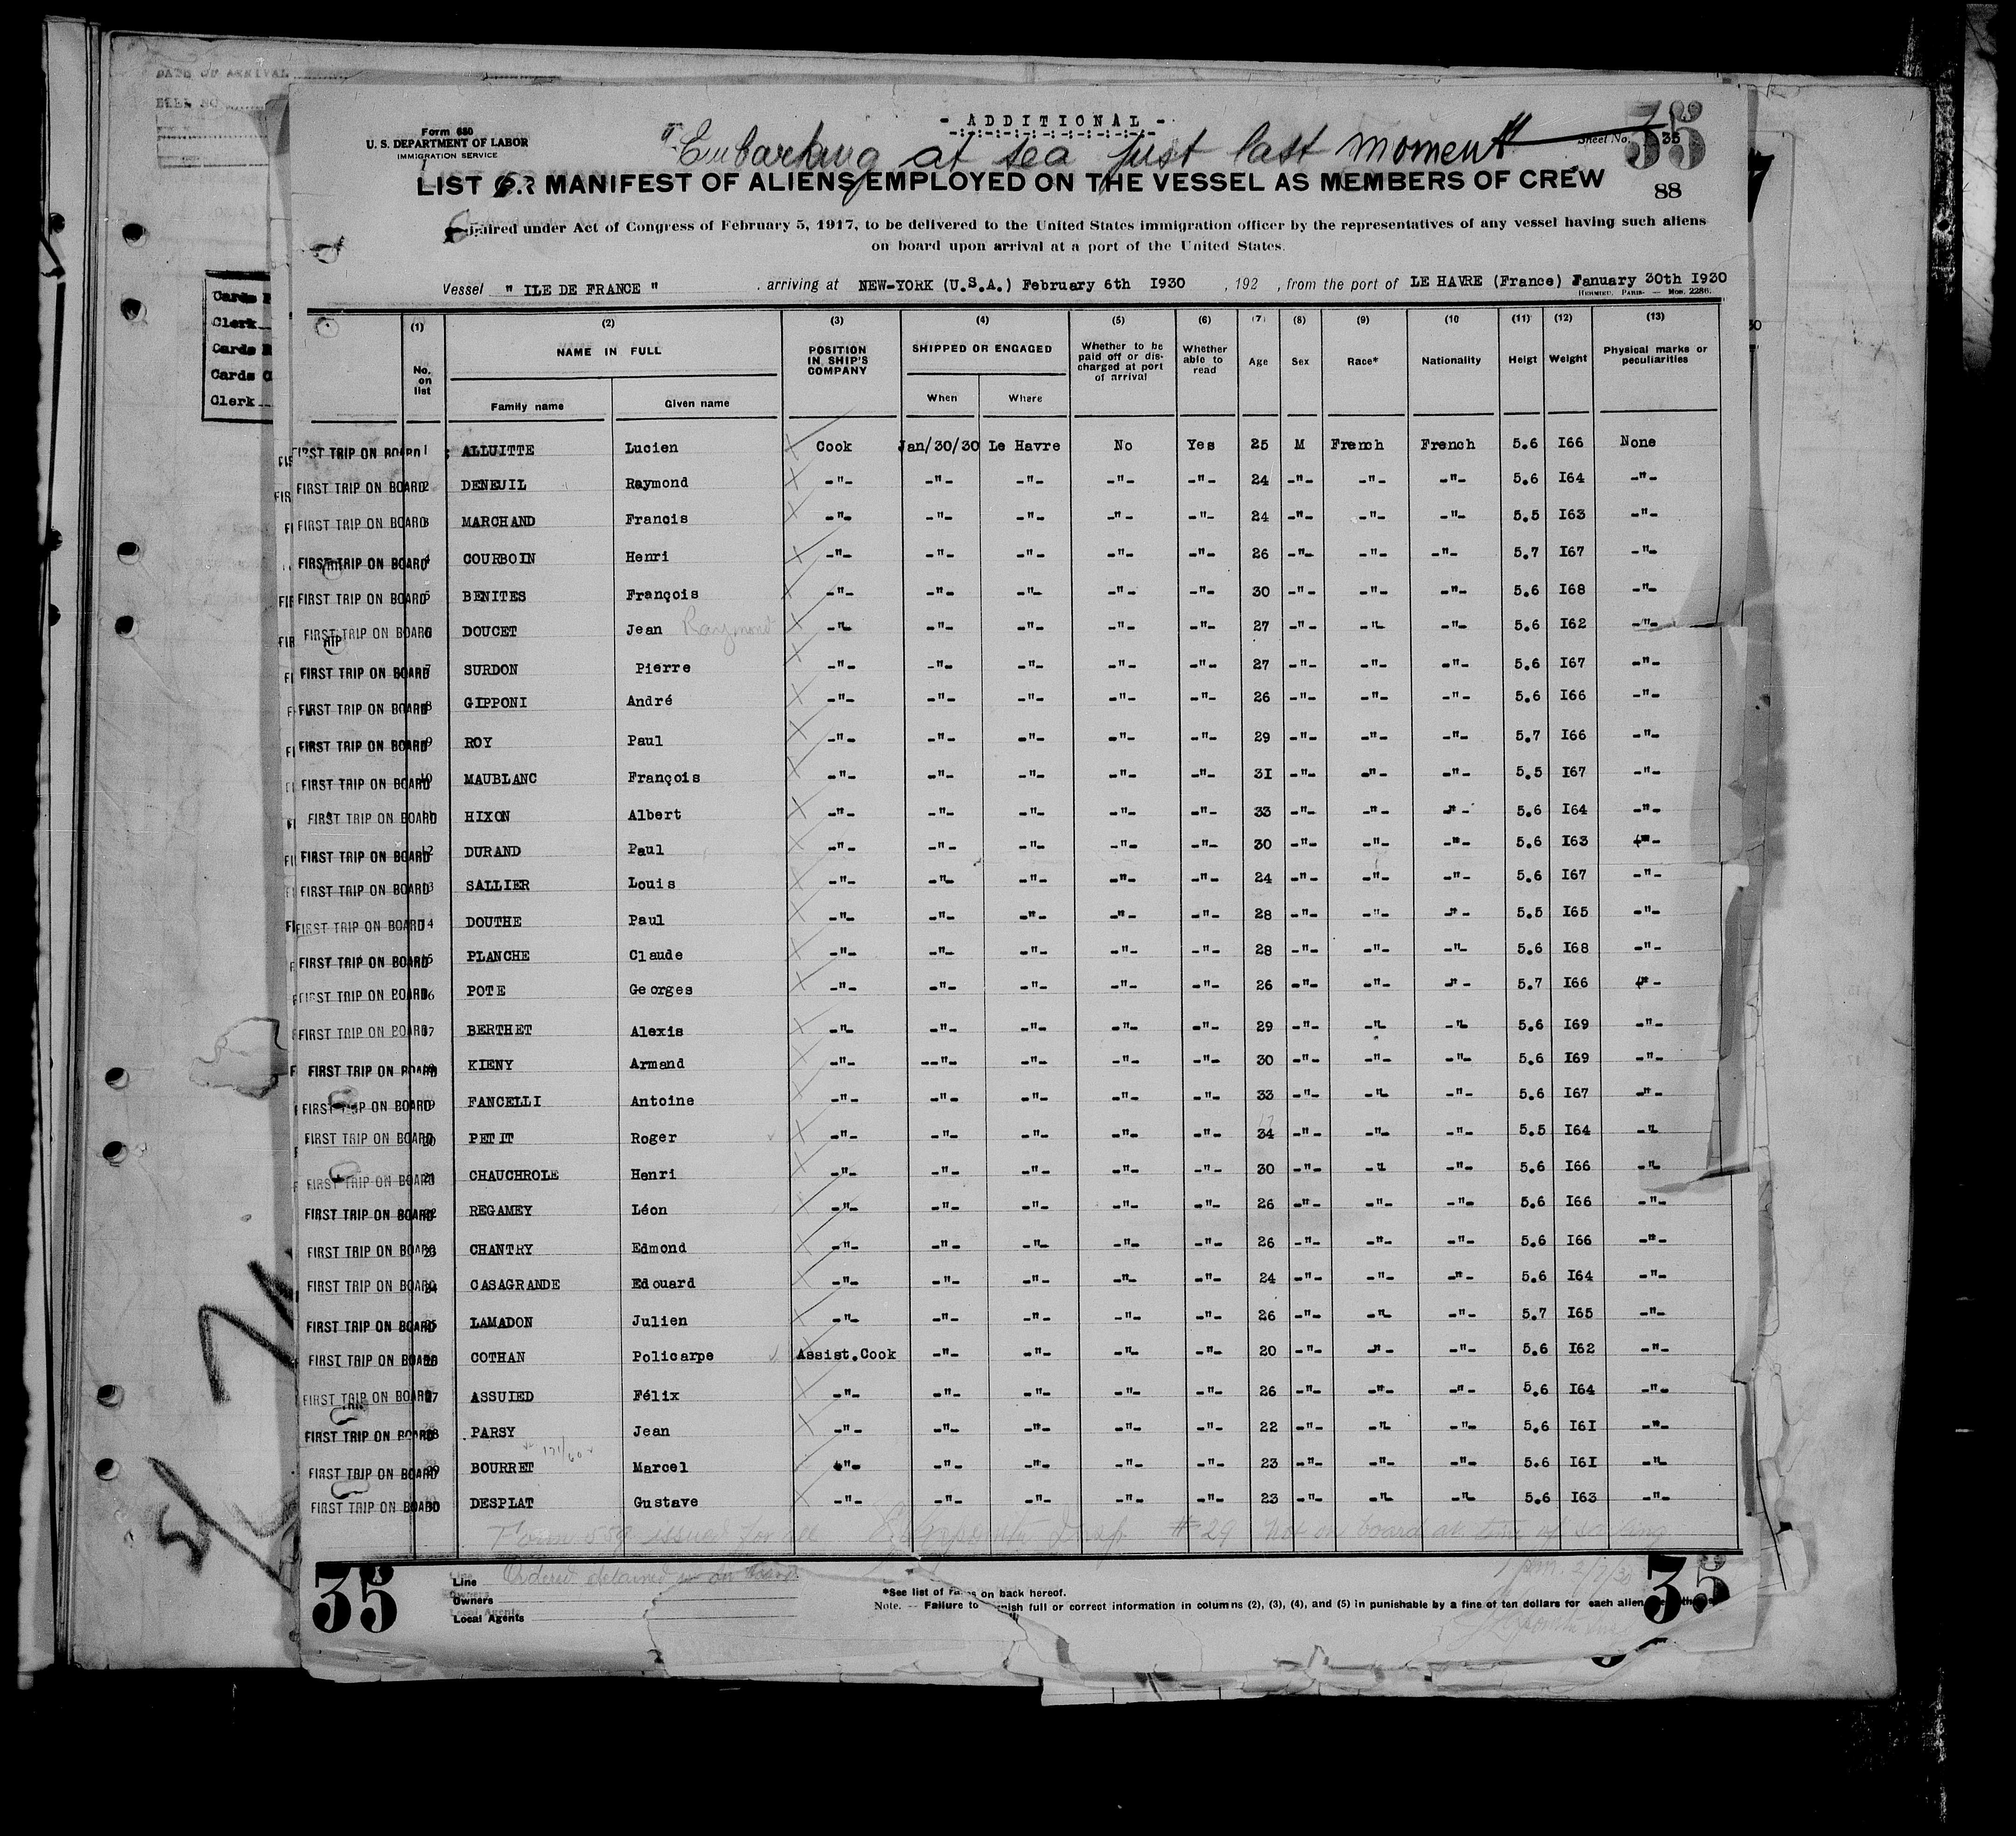 DATE OF ARRIVAL
- ADDITIONAL -
Form 680
U. S. DEPARTMENT OF LABOR
IMMIGRATION SERVICE
"Embarking at sea just last moment"
Sheet No. 35
35
88
LIST OR MANIFEST OF ALIENS EMPLOYED ON THE VESSEL AS MEMBERS OF CREW
under Act of Congress of February 5, 1917, to be delivered to the United States immigration officer by the representatives of any vessel having such aliens
on board upon arrival at a port of the United States.
Vessel " ILE DE FRANCE " arriving at NEW-YORK (U.S.A.) February 6th I930, 192 , from the port of LE HAVRE (France) January 30th I930
HERMIEU. PARIS. — Mos. 2286.
Cards
Clerk
Cards
Cards
Clerk
(1) (2) (3) (4) (5) (6) (7) (8) (9) (10 (11) (12) (13)
No. on list NAME IN FULL POSITION IN SHIP'S COMPANY SHIPPED OR ENGAGED Whether to be paid off or discharged at port of arrival Whether able to read Age Sex Race* Nationality Heigt Weight Physical marks or peculiarities
Family name Given name When Where
FIRST TRIP ON BOARD 1 ALLUITTE Lucien Cook Jan/30/30 Le Havre No Yes 25 M French French 5.6 I66 None
FIRST TRIP ON BOARD 2 DENEUIL Raymond -"- -"- -"- -"- -"- 24 -"- -"- -"- 5.6 I64 -"-
FIRST TRIP ON BOARD 3 MARCHAND Francis -"- -"- -"- -"- -"- 24 -"- -"- -"- 5.5 I63 -"-
FIRST TRIP ON BOARD 4 COURBOIN Henri -"- -"- -"- -"- -"- 26 -"- -"- -"- 5.7 I67 -"-
FIRST TRIP ON BOARD 5 BENITES François -"- -"- -"- -"- -"- 30 -"- -"- -"- 5.6 I68 -"-
FIRST TRIP ON BOARD 6 DOUCET Jean Raymond -"- -"- -"- -"- -"- 27 -"- -"- -"- 5.6 I62 -"-
FIRST TRIP ON BOARD 7 SURDON Pierre -"- -"- -"- -"- -"- 27 -"- -"- -"- 5.6 I67 -"-
FIRST TRIP ON BOARD 8 GIPPONI André -"- -"- -"- -"- -"- 26 -"- -"- -"- 5.6 I66 -"-
FIRST TRIP ON BOARD 9 ROY Paul -"- -"- -"- -"- -"- 29 -"- -"- -"- 5.7 I66 -"-
FIRST TRIP ON BOARD 10 MAUBLANC François -"- -"- -"- -"- -"- 3I -"- -"- -"- 5.5 I67 -"-
FIRST TRIP ON BOARD 11 HIXON Albert -"- -"- -"- -"- -"- 33 -"- -"- -"- 5.6 I64 -"-
FIRST TRIP ON BOARD 12 DURAND Paul -"- -"- -"- -"- -"- 30 -"- -"- -"- 5.6 I63 -"-
FIRST TRIP ON BOARD 13 SALLIER Louis -"- -"- -"- -"- -"- 24 -"- -"- -"- 5.6 I67 -"-
FIRST TRIP ON BOARD 14 DOUTHE Paul -"- -"- -"- -"- -"- 28 -"- -"- -"- 5.5 I65 -"-
FIRST TRIP ON BOARD 15 PLANCHE Claude -"- -"- -"- -"- -"- 28 -"- -"- -"- 5.6 I68 -"-
FIRST TRIP ON BOARD 16 POTE Georges -"- -"- -"- -"- -"- 26 -"- -"- -"- 5.7 I66 -"-
FIRST TRIP ON BOARD 17 BERTHET Alexis -"- -"- -"- -"- -"- 29 -"- -"- -"- 5.6 I69 -"-
FIRST TRIP ON BOARD 18 KIENY Armand -"- --"- -"- -"- -"- 30 -"- -"- -"- 5.6 I69 -"-
FIRST TRIP ON BOARD 19 FANCELLI Antoine -"- -"- -"- -"- -"- 33 -"- -"- -"- 5.6 I67 -"-
FIRST TRIP ON BOARD 20 PETIT Roger -"- -"- -"- -"- -"- 34 -"- -"- -"- 5.5 I64 -"-
FIRST TRIP ON BOARD 21 CHAUCHROLE Henri -"- -"- -"- -"- -"- 30 -"- -"- -"- 5.6 I66 -"-
FIRST TRIP ON BOARD 22 REGAMEY Léon -"- -"- -"- -"- -"- 26 -"- -"- -"- 5.6 I66 -"-
FIRST TRIP ON BOARD 23 CHANTRY Edmond -"- -"- -"- -"- -"- 26 -"- -"- -"- 5.6 I66 -"-
FIRST TRIP ON BOARD 24 CASAGRANDE Edouard -"- -"- -"- -"- -"- 24 -"- -"- -"- 5.6 I64 -"-
FIRST TRIP ON BOARD 25 LAMADON Julien -"- -"- -"- -"- -"- 26 -"- -"- -"- 5.7 I65 -"-
FIRST TRIP ON BOARD 26 COTHAN Policarpe Assist.Cook -"- -"- -"- -"- 20 -"- -"- -"- 5.6 I62 -"-
FIRST TRIP ON BOARD 27 ASSUIED Félix -"- -"- -"- -"- -"- 26 -"- -"- -"- 5.6 I64 -"-
FIRST TRIP ON BOARD 28 PARSY Jean -"- -"- -"- -"- -"- 22 -"- -"- -"- 5.6 I6I -"-
FIRST TRIP ON BOARD 29 BOURRET Marcel -"- -"- -"- -"- -"- 23 -"- -"- -"- 5.6 I6I -"-
FIRST TRIP ON BOARD 30 DESPLAT Gustave -"- -"- -"- -"- -"- 23 -"- -"- -"- 5.6 I63 -"-
Form 689 issued for all #29 Not on board at time of sailing
1 pm. 2/7/30
35 Line Ordered detained on board 35
Owners
Local Agents
*See list of races on back hereof.
Note. — Failure to furnish full or correct information in columns (2), (3), (4), and (5) in punishable by a fine of ten dollars for each alien